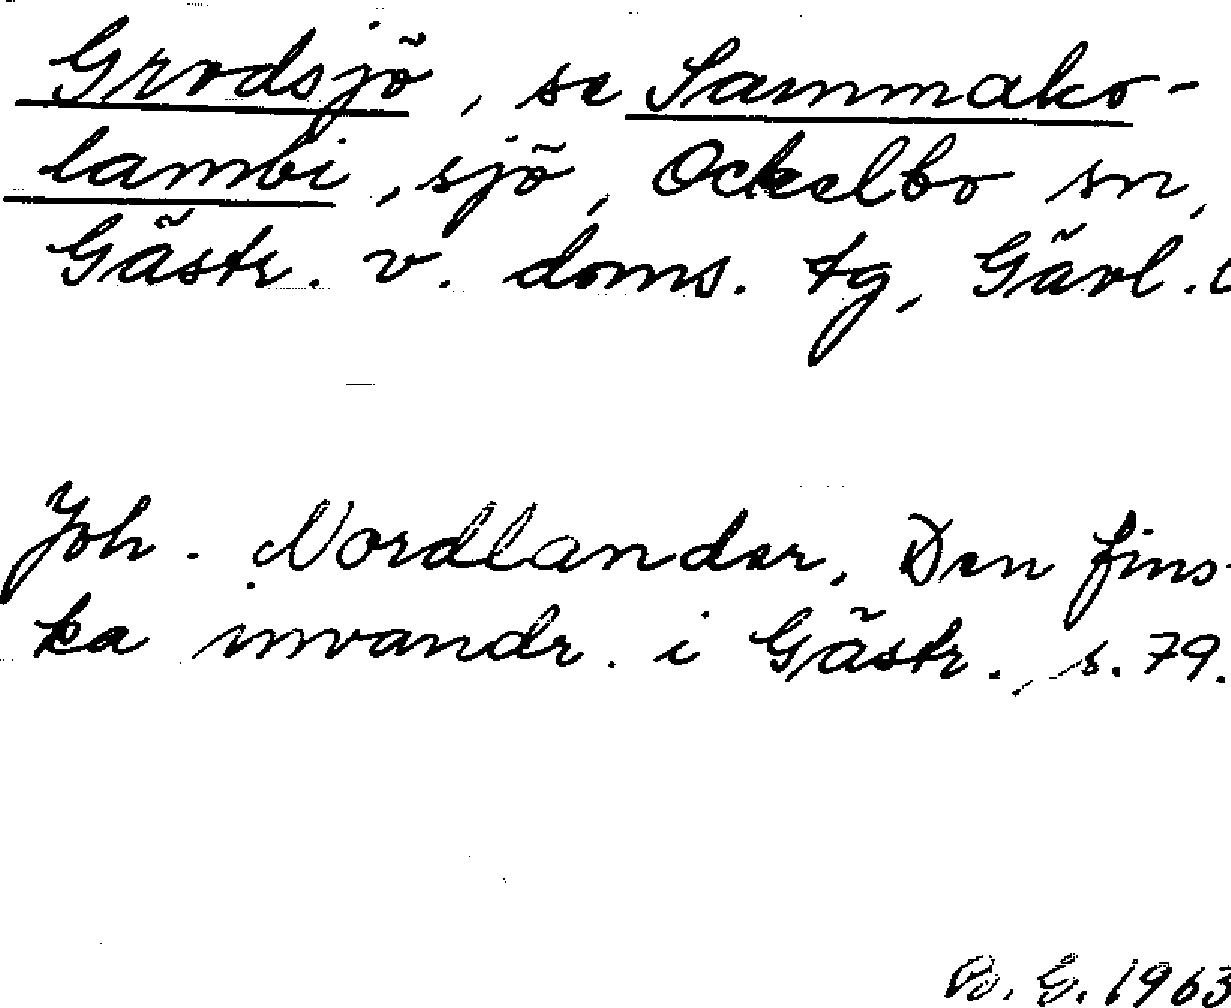 Grodsjö, se Sammako-
lambi, sjö, Ockelbo sn,
Gästr. v. doms. tg, Gävl. l
Joh. Nordlander, Den fins-
ka invandr. i Gästr., s. 79.
B. E. 1963